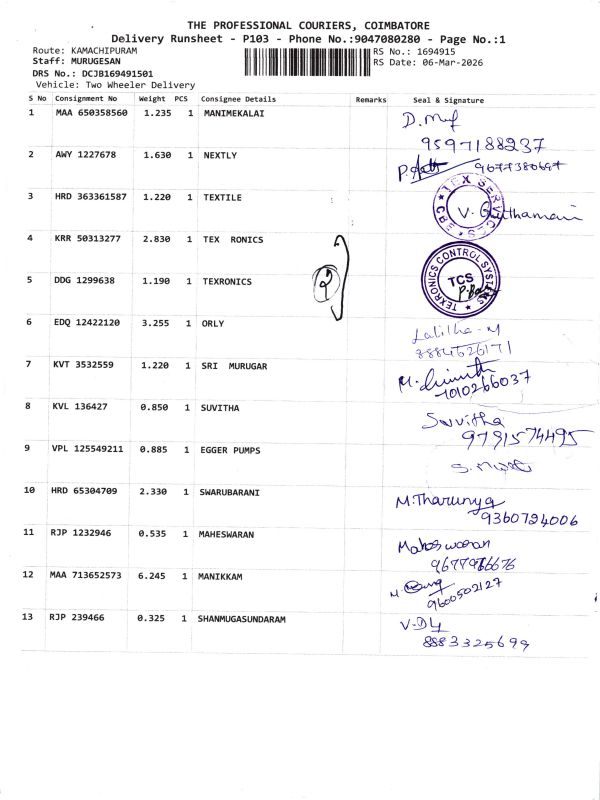 THE PROFESSIONAL COURIERS, COIMBATORE
Delivery Runsheet - P103 - Phone No.:9047080280 - Page No.:1
Route: KAMACHIPURAM RS No.: 1694915
Staff: MURUGESAN RS Date: 06-Mar-2026
DRS No.: DCJB169491501
Vehicle: Two Wheeler Delivery
S No Consignment No Weight PCS Consignee Details Remarks Seal & Signature
1 MAA 650358560 1.235 1 MANIMEKALAI D.
9597188237
2 AWY 1227678 1.630 1 NEXTLY
9677380697
3 HRD 363361587 1.220 1 TEXTILE TEX SERVICES V.
4 KRR 50313277 2.830 1 TEX RONICS
5 DDG 1299638 1.190 1 TEXRONICS 2 TEXRONICS CONTROL SYSTEMS TCS
6 EDQ 12422120 3.255 1 ORLY Lalitha-M
8884626171
7 KVT 3532559 1.220 1 SRI MURUGAR M.
7010266037
8 KVL 136427 0.850 1 SUVITHA Suvitha
9791574495
9 VPL 125549211 0.885 1 EGGER PUMPS S.
10 HRD 65304709 2.330 1 SWARUBARANI M.Tharunya
9360724006
11 RJP 1232946 0.535 1 MAHESWARAN Maheswaran
12 MAA 713652573 6.245 1 MANIKKAM M.
9600502127
13 RJP 239466 0.325 1 SHANMUGASUNDARAM
8883325699